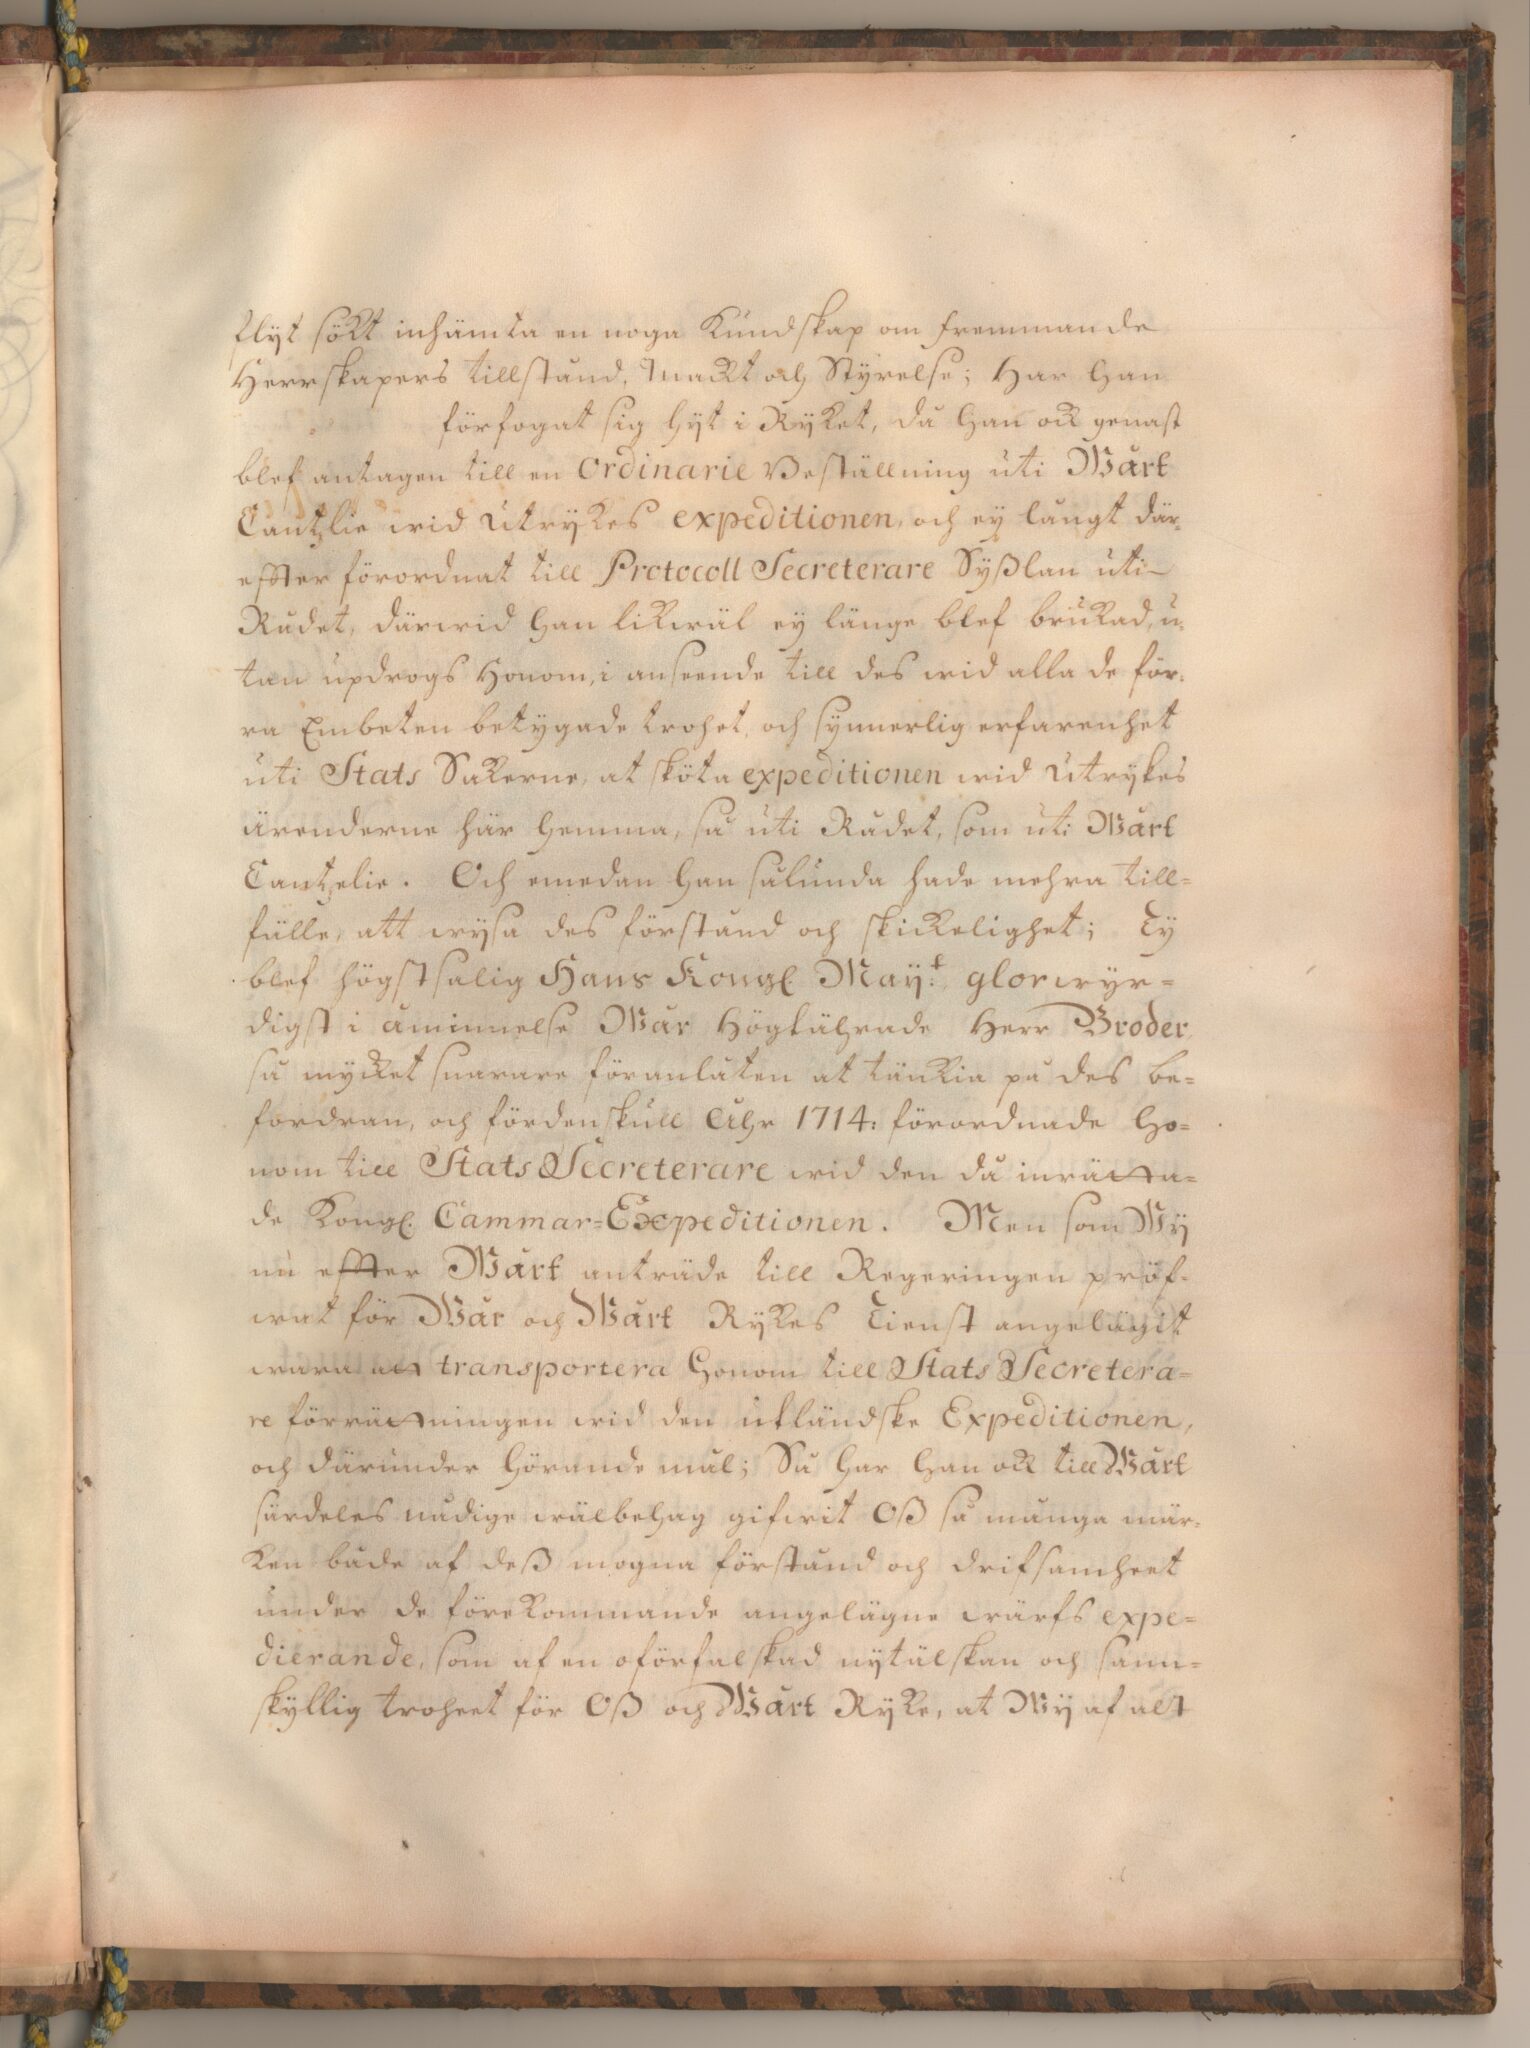 flyt sökt inhämta en noga Kundskap om fremmande
Herrskapers tillstånd, Mackt och Styrelse; Har Han
förfogat sig hyt i Ryket, då Han ock genast
blef antagen till en Ordinarie Beställning uti Wårt
Cantzlie wid Utrykes expeditionen, och ey långt där-
effter förordnat till Protocoll Secreterare Sysslan uti
Rådet, därwid Han likwäl ey länge blef brukad, u-
tan updrogs Honom, i anseende till des wid alla de för-
ra Embeten betygade trohet, och synnerlig erfarenhet
uti Stats Sakerne, at sköta expeditionen wid Utrykes
ärenderne här hemma, så uti Rådet, som uti Wårt
Cantzelie. Och emedan Han sålunda hade mehra till-
fälle, att wysa des förstånd och skickelighet; Ty
blef högstsalig Hans Kongl. May:t glorwyr-
digst i åminnelse Wår Högtährade Herr Broder
så mycket snarare föranlåten at tänkia på des be-
fordran, och fördenskull Åhr 1714: förordnade Ho-
nom till Stats Secreterare wid den då inrätta-
de Kongl. Cammar-Expeditionen. Men som Wy
nu effter Wårt anträde till Regeringen pröf-
wat för Wår och Wårt Rykes Tienst angelägit
wara att transportera Honom till Stats Secretera-
re förrättningen wid den utländske Expeditionen,
och därunder hörande mål; Så har Han ock till Wårt
särdeles nådige wälbehag gifwit Oß så många mär-
ken både af deß mogna förstånd och drifsamheet
under de förekommande angelägne wärfs expe-
dierande, som af en oförfalskad nytälskan och sann-
skyllig troheet för Oß och Wårt Ryke, at Wy af alt